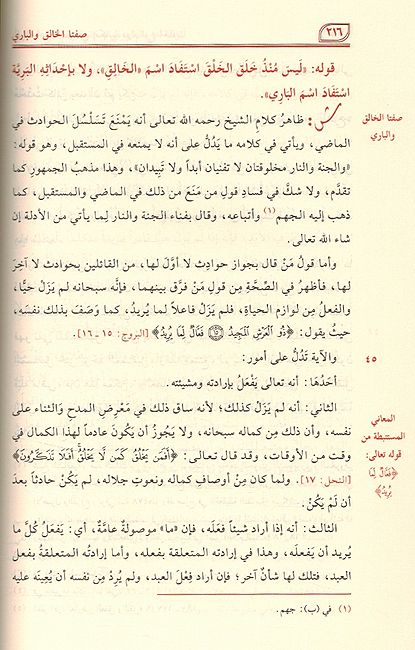 ٢١٦
صفتا الخالق والباري
قوله: «لَيسَ مُنْذُ خَلَقَ الخَلْقَ اسْتَفَادَ اسْمَ «الخَالِقِ»، ولا بإحْدَاثِهِ البَرِيَّة
اسْتَفَادَ اسْمَ البَارِي».
صفتا الخالق
والباري
ش: ظاهرُ كلامِ الشيخ رحمه الله تعالى أنه يَمْنَعَ تَسَلْسُلَ الحوادث في
الماضي، ويأتي في كلامه ما يَدُلُّ على أنه لا يمنعه في المستقبل، وهو قوله:
«والجنة والنار مخلوقتان لا تفنيان أبداً ولا تَبِيدان»، وهذا مذهبُ الجمهورِ كما
تقدَّم، ولا شكَّ في فسادِ قولِ من مَنَعَ من ذلك في الماضي والمستقبل، كما
ذهب إليه الجهم(١) وأتباعه، وقال بفناء الجنة والنار لِما يأتي من الأدلة إن
شاء الله تعالى.
وأما قولُ مَنْ قال بجواز حوادِث لا أوَّلَ لها، من القائلين بحوادث لا آخِرَ
لها، فأظهرُ في الصِّحَّةِ مِن قولِ مَنْ فرَّق بينهما، فإنَّه سبحانه لم يَزَلْ حيَّاً،
والفعلُ مِن لوازم الحياةِ، فلم يَزَلْ فاعلاً لما يُريدُ، كما وَصَفَ بذلك نفسَه،
حيثُ يقول: ﴿ذُو ٱلْعَرْشِ ٱلْمَجِيدُ ۝١٥ فَعَّالٌ لِّمَا يُرِيدُ﴾ [البروج: ١٥ ـ ١٦].
٤٥
والآية تَدُلُّ على أمور:
أحَدُهَا: أنه تعالى يَفْعَلُ بإرادته ومشيئته.
المعاني
المستنبطة من
قوله تعالى:
﴿فَعَّالٌ لِّمَا
يُرِيدُ﴾
الثاني: أنه لم يَزَلْ كذلك؛ لأنه ساق ذلك في مَعْرِضِ المدحِ والثناء على
نفسه، وأن ذلك مِن كماله سبحانه، ولا يَجُوزُ أن يكُونَ عادماً لهذا الكمال في
وقت من الأوقات، وقد قال تعالى: ﴿أَفَمَن يَخْلُقُ كَمَن لَّا يَخْلُقُ أَفَلَا تَذَكَّرُونَ﴾
[النحل: ١٧]. ولما كان مِنْ أوصافِ كماله ونعوتِ جلاله، لم يَكُنْ حادثاً بعدَ
أن لَمْ يَكُنْ.
الثالث: أنه إذا أراد شيئاً فعَلَه، فإن «ما» موصولةٌ عامَّةٌ، أي: يَفعَلُ كُلَّ ما
يُريد أن يَفعَلَه، وهذا في إرادته المتعلقة بفعله، وأما إرادتُه المتعلقةُ بفعل
العبد، فتلك لها شأنٌ آخر؛ فإن أراد فِعْلَ العبد، ولم يُرِدْ مِن نفسه أن يُعِينَه عليه
(١) في (ب): جهم.